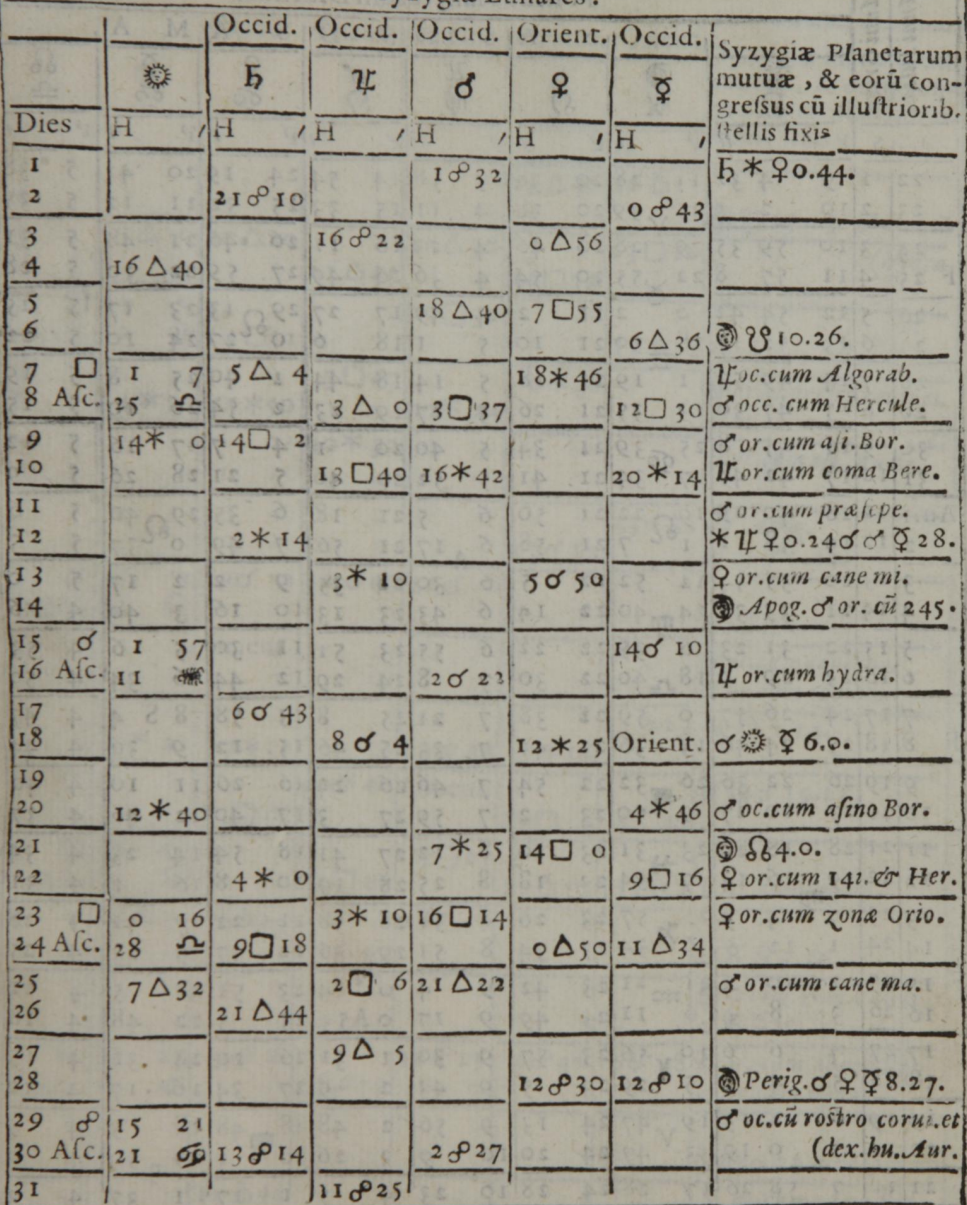 Occid. Occid. Occid. Orient. Occid. Syzygiæ Planetarum
☉ ♄ ♃ ♂ ♀ ☿ mutuæ, & eorū con-
greſsus cū illuſtriorib.
Dies H ′ H ′ H ′ H ′ H ′ H ′ ſtellis fixis
1 1☍32 ♄⚹♀0.44.
2 21☍10 0☍43
3 16☍22 0△56
4 16△40
5 18△40 7□55
6 6△36 ☋10.26.
7 □ 1 7 5△4 18⚹46 ♃oc.cum Algorab.
8 Aſc. 25 ♎ 3△0 3□37 12□30 ♂occ. cum Hercule.
9 14⚹0 14□2 ♂or.cum aſi. Bor.
10 13□40 16⚹42 20⚹14 ♃or.cum coma Bere.
11 ♂or.cum præſepe.
12 2⚹14 ⚹♃♀0.24☌♂☿28.
13 3⚹10 5☌50 ♀or.cum cane mi.
14 Apog.♂or. cū 245.
15 ☌ 1 57 14☌10
16 Aſc. 11 2☌22 ♃or.cum hydra.
17 6☌43
18 8☌4 12⚹25 Orient. ☌☉☿6.0.
19
20 12⚹40 4⚹46 ♂oc.cum aſino Bor.
21 7⚹25 14□0 ☊4.0.
22 4⚹0 9□16 ♀or.cum 141.& Her.
23 □ 0 16 3⚹10 16□14 ♀or.cum zonæ Orio.
24 Aſc. 28 ♎ 9□18 0△50 11△34
25 7△32 2□6 21△22 ♂or.cum cane ma.
26 21△44
27 9△5
28 12☍30 12☍10 Perig.☌♀☿8.27.
29 ☍ 15 21 ♂oc.cū roſtro corui.et
30 Aſc. 21 ♋ 13☍14 2☍27 (dex.hu.Aur.
31 11☍25